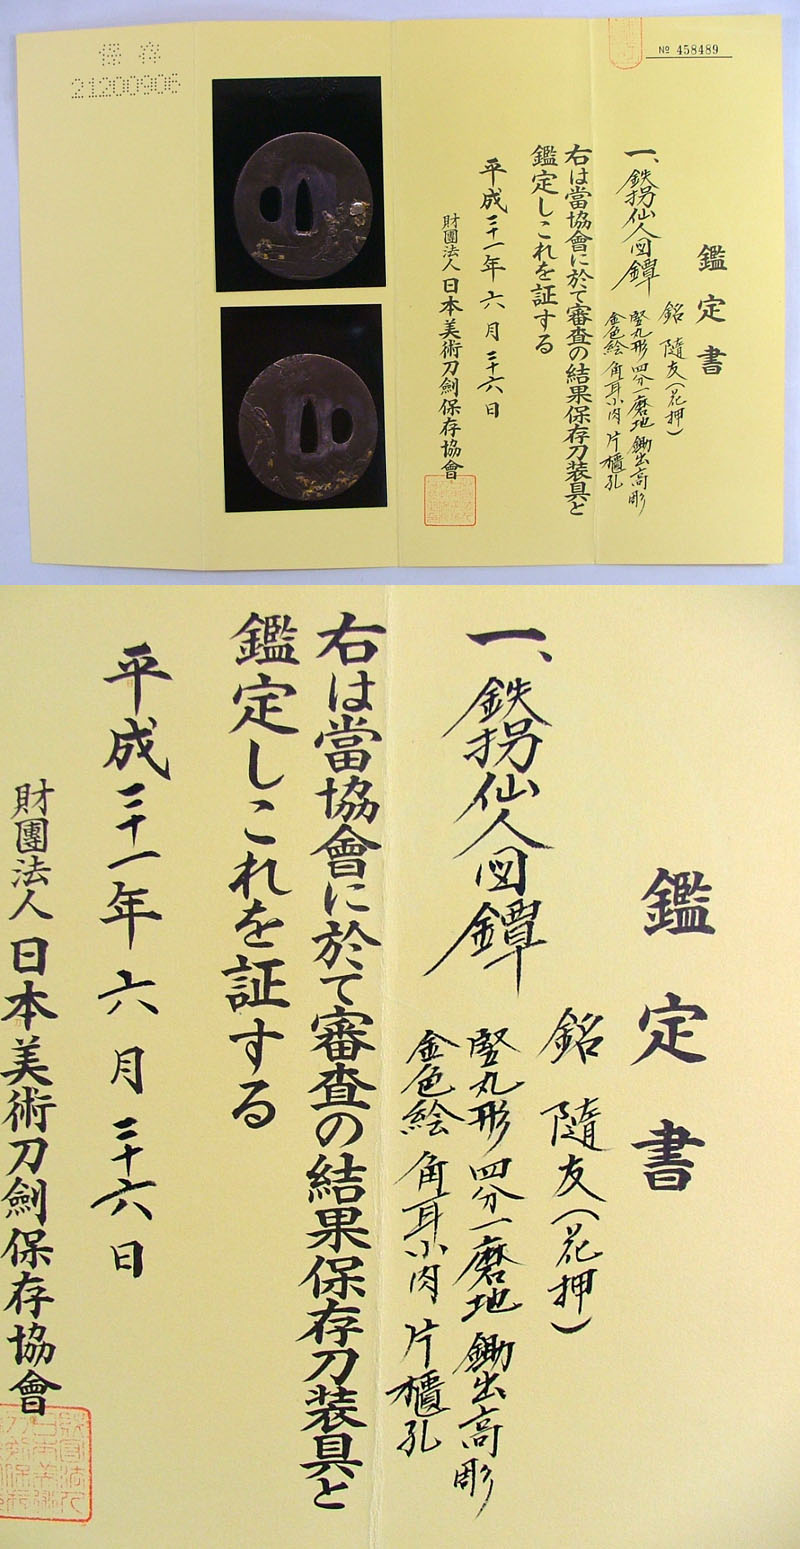 保存
21200906
№ 458489
鑑定書
一、鉄拐仙人図鐔
銘 随友(花押)
竪丸形 四分一磨地 鋤出高彫
金色絵 角耳小肉 片櫃孔
右は當協會に於て審査の結果保存刀装具と
鑑定しこれを証する
平成二十一年六月二十六日
財團法人日本美術刀劍保存協會
鑑定書
一、鉄拐仙人図鐔
銘 随友(花押)
竪丸形 四分一磨地 鋤出高彫
金色絵 角耳小肉 片櫃孔
右は當協會に於て審査の結果保存刀装具と
鑑定しこれを証する
平成二十一年六月二十六日
財團法人日本美術刀劍保存協會